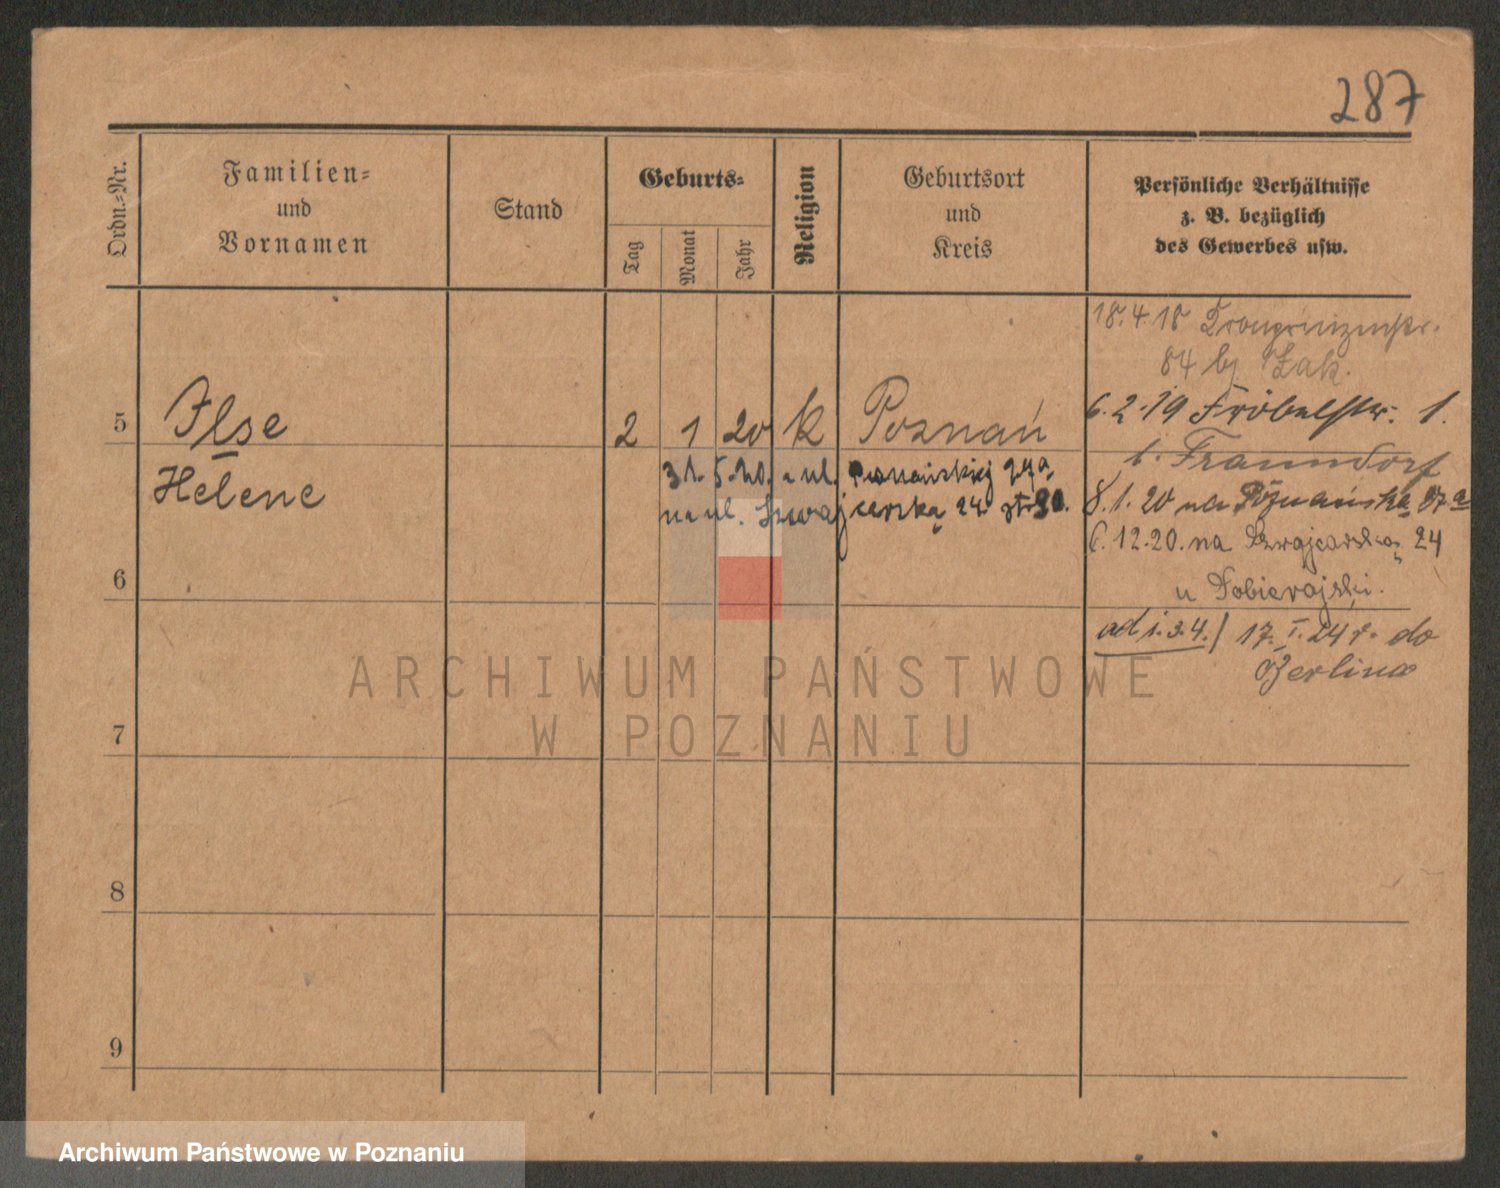 287
Ordn.-Nr.
Familien-
und
Vornamen
Stand
Geburts-
Tag
Monat
Jahr
Religion
Geburtsort
und
Kreis
Persönliche Verhältnisse
z. B. bezüglich
des Gewerbes usw.
18.4.18 Kronprinzenstr.
84 bj Żak.
5 Ilse 2 1 20 k Poznań
6.2.19 Fröbelstr. 1.
b.
Helene
5.20. ul. Poznańskiej 27a
na ul. Szwajcarską 24
8.1.20 na Poznańską 27a
6.12.20. na Szwajcarską 24
u Dobierajski.
6
ad i. 3.4. / 17. I. 24 r. do
Berlina
ARCHIWUM PAŃSTWOWE
W POZNANIU
7
8
9
Archiwum Państwowe w Poznaniu